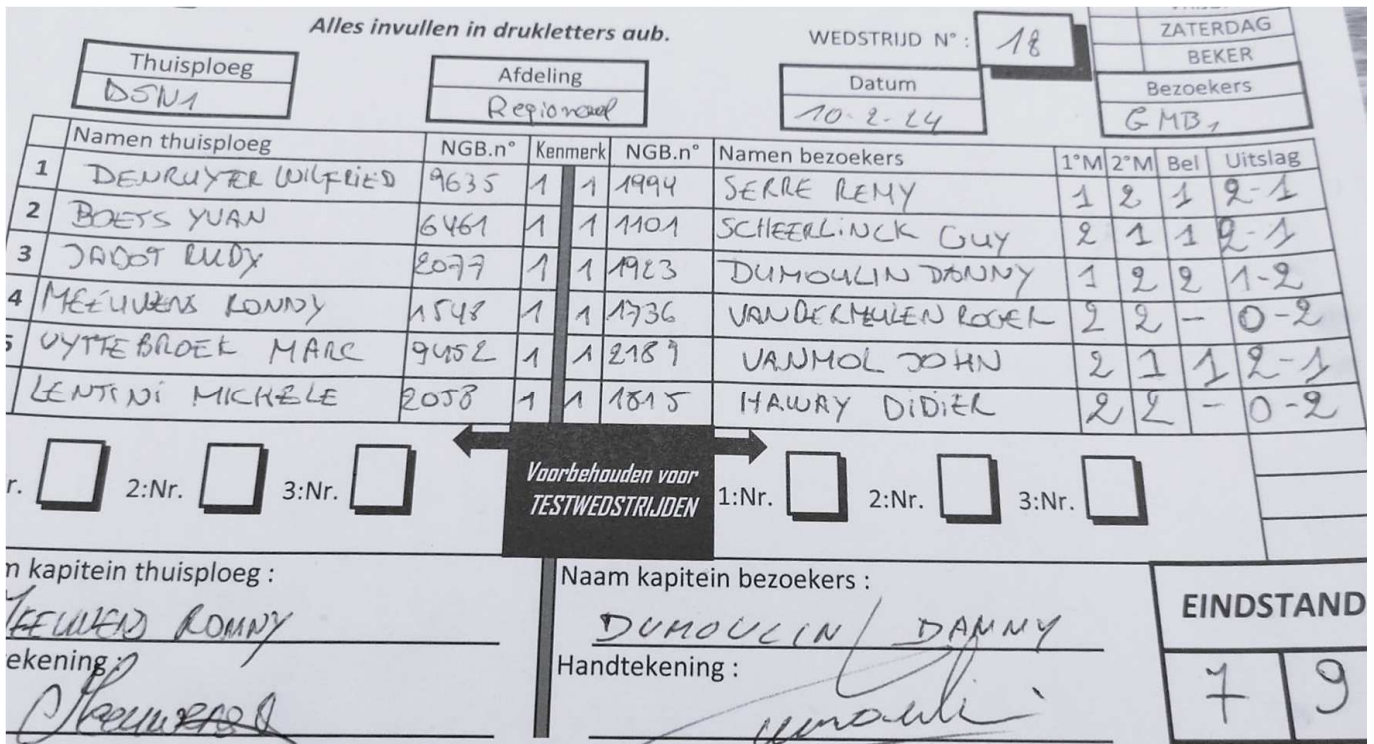 Alles invullen in drukletters aub.
WEDSTRIJD N° : 18
ZATERDAG
BEKER
Thuisploeg
DSN1
Afdeling
Regionaal
Datum
10-2-24
Bezoekers
GMB1
Namen thuisploeg NGB.n° Kenmerk NGB.n° Namen bezoekers 1°M 2°M Bel Uitslag
1 DENRUYTER WILFRIED 9635 1 1 1994 SERRE REMY 1 2 1 2-1
2 BOETS YUAN 6461 1 1 1101 SCHEERLINCK GUY 2 1 1 2-1
3 JADOT RUDY 2077 1 1 1923 DUMOULIN DANNY 1 2 2 1-2
4 MEEUWENS RONNY 1548 1 1 1736 VANDERMEULEN ROGER 2 2 - 0-2
5 UYTTEBROEK MARC 9452 1 1 2189 VANMOL JOHN 2 1 1 2-1
LENTINI MICHELE 2058 1 1 1815 HAWAY DIDIER 2 2 - 0-2
r. 2:Nr. 3:Nr.
Voorbehouden voor
TESTWEDSTRIJDEN
1:Nr. 2:Nr. 3:Nr.
m kapitein thuisploeg :
MEEUWENS RONNY
ekening :
Naam kapitein bezoekers :
DUMOULIN DANNY
Handtekening :
EINDSTAND
7 9